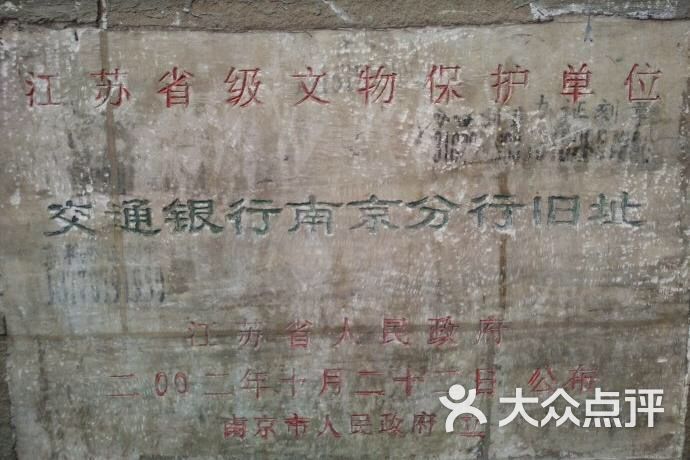 江苏省级文物保护单位
交通银行南京分行旧址
江苏省人民政府
二00二年十月二十二日 公布
南京市人民政府 立
大众点评